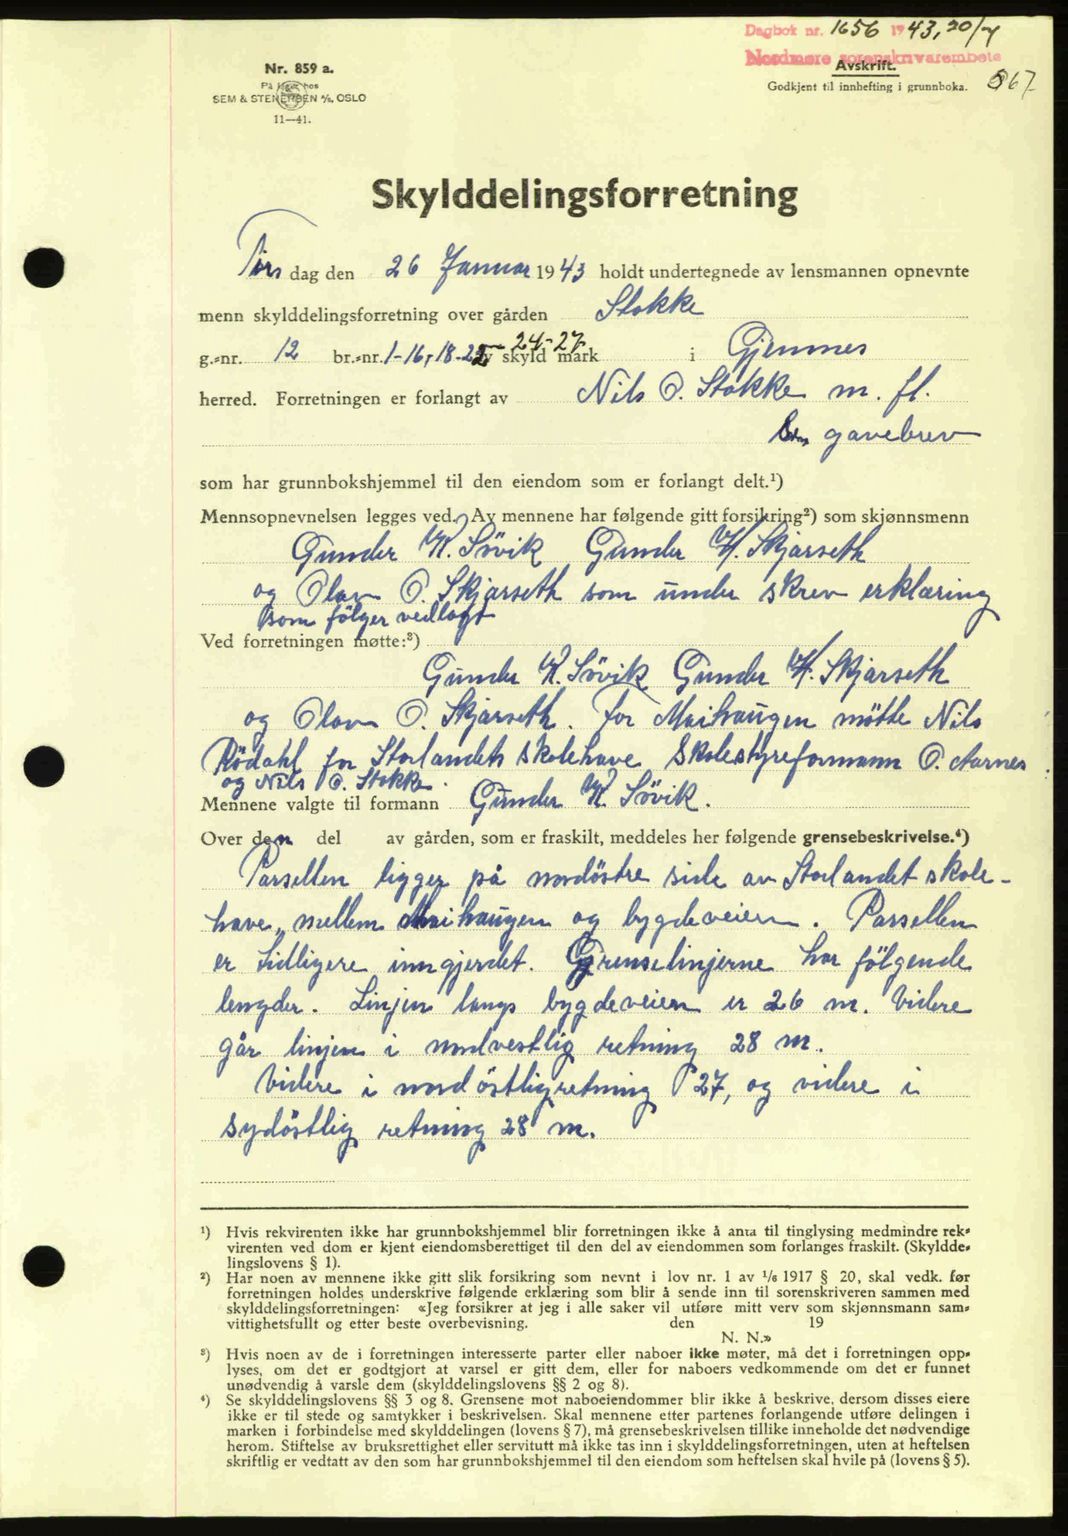 Dagbok nr. 1656 1943, 20/7
Nordmøre sorenskrivarembete
Avskrift.
Godkjent til innhefting i grunnboka.
567
Nr. 859 a.
På lager hos
SEM & STENERSEN A/S, OSLO
11—41.
Skylddelingsforretning
Tirs dag den 26 Januar 1943 holdt undertegnede av lensmannen opnevnte
menn skylddelingsforretning over gården Stokke
24-27
g.-nr. 12 br.-nr. 1-16, 18-22 av skyld mark i Gjemnes
herred. Forretningen er forlangt av Nils O. Stokke m. fl.
gavebrev
som har grunnbokshjemmel til den eiendom som er forlangt delt.¹)
Mennsopnevnelsen legges ved. Av mennene har følgende gitt forsikring²) som skjønnsmenn
Gunder K. Sövik Gunder H. Skjærseth
og Olav O. Skjærseth som under skrev erklæring
som fölger vedlagt
Ved forretningen møtte:³)
Gunder K. Sövik Gunder H. Skjærseth
og Olav O. Skjærseth. For Maihaugen mötte Nils
Rödahl for Storlandets skolehave Skolestyreformann O. Aarnes
og Nils O. Stokke.
Mennene valgte til formann Gunder K. Sövik.
Over den del av gården, som er fraskilt, meddeles her følgende grensebeskrivelse.⁴)
Parsellen ligger på nordöstre side av Storlandet skole-
have, mellem Maihaugen og bygdeveien. Parsellen
er tidligere inngjerdet. Grenselinjerne har fölgende
lengder. Linjen langs bygdeveien er 26 m. Videre
går linjen i nordvestlig retning 28 m.
Videre i nordöstlig retning 27, og videre i
sydöstlig retning 28 m.
¹) Hvis rekvirenten ikke har grunnbokshjemmel blir forretningen ikke å anta til tinglysing medmindre rek-
virenten ved dom er kjent eiendomsberettiget til den del av eiendommen som forlanges fraskilt. (Skyldde-
lingslovens § 1).
²) Har noen av mennene ikke gitt slik forsikring som nevnt i lov nr. 1 av 1/6 1917 § 20, skal vedk. før
forretningen holdes underskrive følgende erklæring som blir å sende inn til sorenskriveren sammen med
skylddelingsforretningen: «Jeg forsikrer at jeg i alle saker vil utføre mitt verv som skjønnsmann sam-
vittighetsfullt og etter beste overbevisning. den 19
N. N.»
³) Hvis noen av de i forretningen interesserte parter eller naboer ikke møter, må det i forretningen opp-
lyses, om det er godtgjort at varsel er gitt dem, eller for naboers vedkommende om det er funnet
unødvendig å varsle dem (skylddelingslovens §§ 2 og 8).
⁴) Se skylddelingslovens §§ 3 og 8. Grensene mot naboeiendommer blir ikke å beskrive, dersom disses eiere
ikke er til stede og samtykker i beskrivelsen. Skal mennene etter partenes forlangende utføre delingen i
marken i forbindelse med skylddelingen (lovens § 7), må grensebeskrivelsen tillike inneholde det nødvendige
herom. Stiftelse av bruksrettighet eller servitutt må ikke tas inn i skylddelingsforretningen, uten at heftelsen
skriftlig er vedtatt av den som har grunnbokshjemmel til den eiendom som heftelsen skal hvile på (lovens § 5).